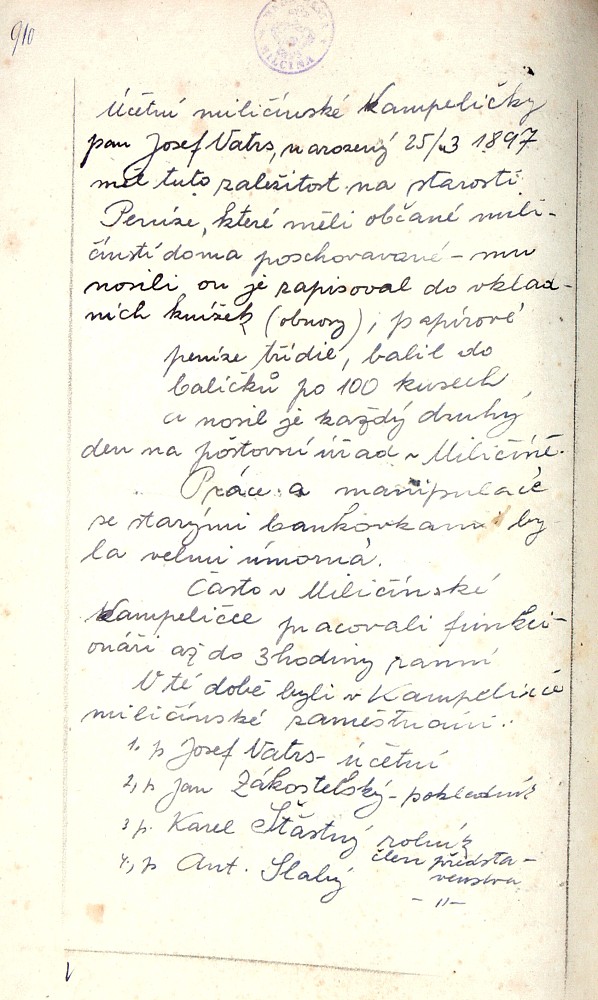 910
MILČÍNA
Účetní miličínské Kampeličky
pan Josef Vatrs, narozený 25/3 1897
měl tuto zaležitost na starosti.
Peníze, které měli občané mili-
čínstí doma poschovavané - mu
nosili on je zapisoval do vklad-
ních knížek (obnosy), papírové
peníze třídil, balil do
balíčků po 100 kusech
a nosil je každý druhý
den na poštovní úřad v Miličíně.
Práce a manipulace
se starými bankovkami by-
la velmi úmorná.
Často v Miličínské
Kampeličce pracovali funkci-
onáři až do 3 hodiny ranní
V té době byli v Kampeličce
miličínské zaměstnáni:
1. p Josef Vatrs - účetní
2, p Jan Zákostelský - pokladník
3 p. Karel Šťastný rolník
člen předsta-
venstva
4, p Ant. Slabý
- 11 -